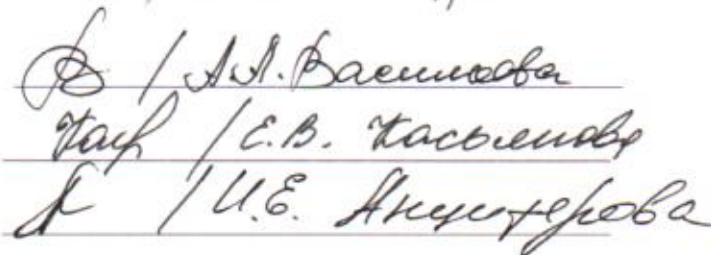 / А.А. Васильева
/ Е.В. Касьянова
/ И.Е. Анциферова